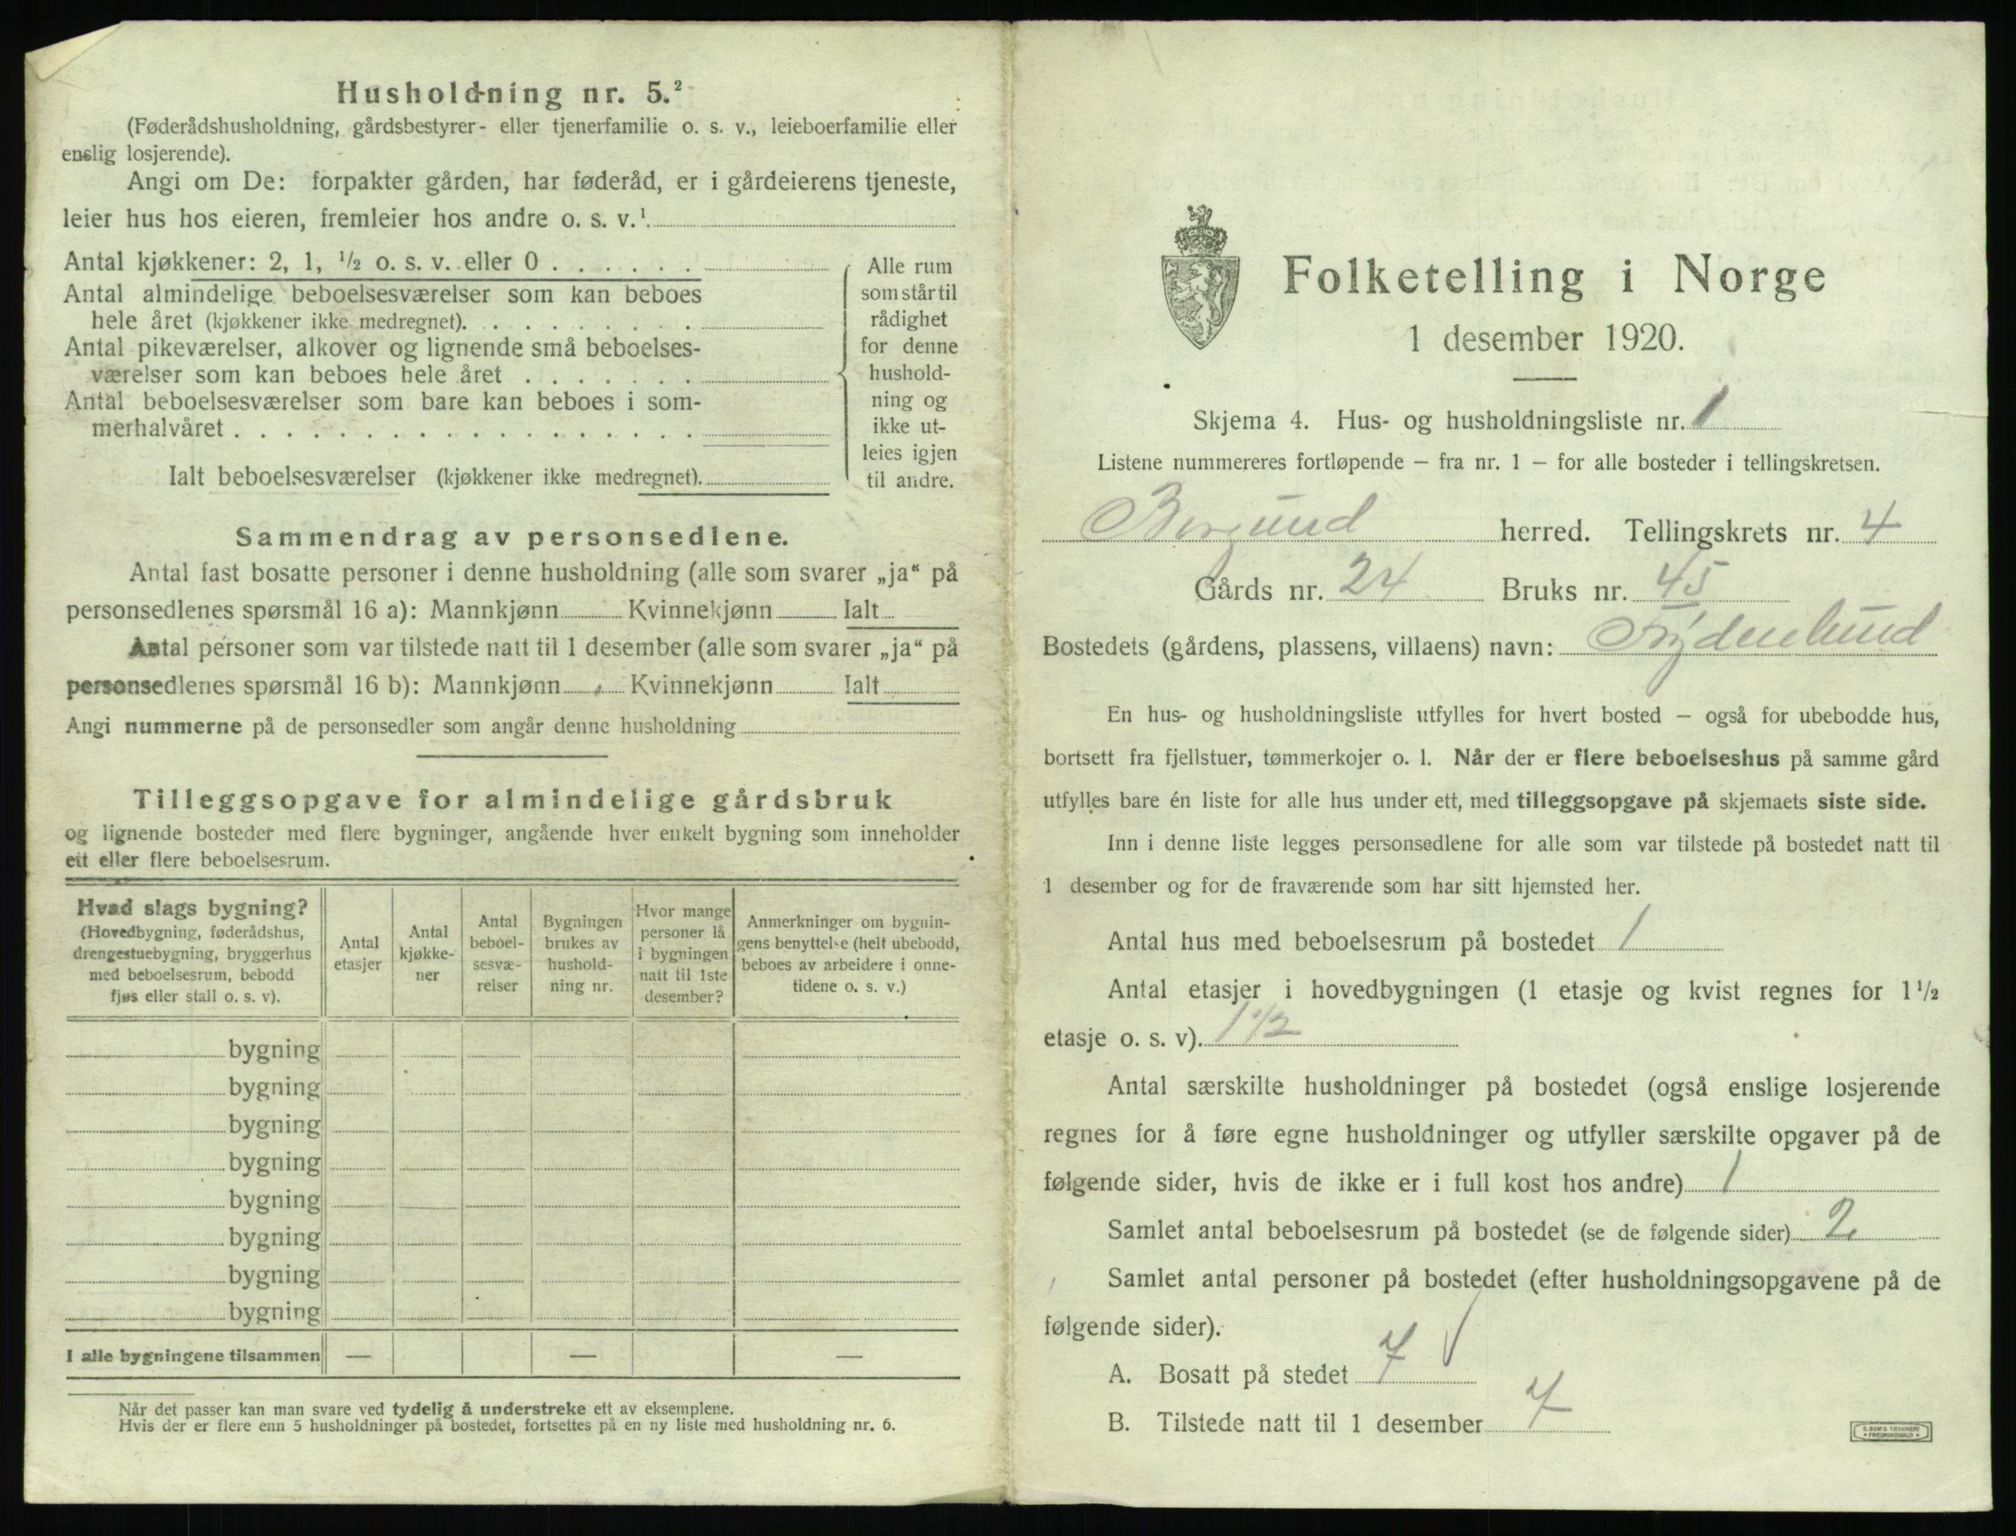 Husholdning nr. 5.²
(Føderådshusholdning, gårdsbestyrer- eller tjenerfamilie o. s. v., leieboerfamilie eller
enslig losjerende).
Angi om De: forpakter gården, har føderåd, er i gårdeierens tjeneste,
leier hus hos eieren, fremleier hos andre o. s. v.¹
Antal kjøkkener: 2, 1, ½ o. s. v. eller 0
Antal almindelige beboelsesværelser som kan beboes
hele året (kjøkkener ikke medregnet).
Antal pikeværelser, alkover og lignende små beboelses-
værelser som kan beboes hele året
Antal beboelsesværelser som bare kan beboes i som-
merhalvåret
Ialt beboelsesværelser (kjøkkener ikke medregnet).
Alle rum
som står til
rådighet
for denne
hushold-
ning og
ikke ut-
leies igjen
til andre.
Sammendrag av personsedlene.
Antal fast bosatte personer i denne husholdning (alle som svarer „ja“ på
personsedlenes spørsmål 16 a): Mannkjønn Kvinnekjønn Ialt
Antal personer som var tilstede natt til 1 desember (alle som svarer „ja“ på
personsedlenes spørsmål 16 b): Mannkjønn Kvinnekjønn Ialt
Angi nummerne på de personsedler som angår denne husholdning
Tilleggsopgave for almindelige gårdsbruk
og lignende bosteder med flere bygninger, angående hver enkelt bygning som inneholder
ett eller flere beboelsesrum.
Hvad slags bygning?
(Hovedbygning, føderådshus,
drengestuebygning, bryggerhus
med beboelsesrum, bebodd
fjøs eller stall o. s. v).
Antal
etasjer
Antal
kjøkke-
ner
Antal
beboel-
sesvæ-
relser
Bygningen
brukes av
hushold-
ning nr.
Hvor mange
personer lå
i bygningen
natt til 1ste
desember?
Anmerkninger om bygnin-
gens benyttelse (helt ubebodd,
beboes av arbeidere i onne-
tidene o. s. v.)
bygning
bygning
bygning
bygning
bygning
bygning
bygning
bygning
I alle bygningene tilsammen — — —
Når det passer kan man svare ved tydelig å understreke ett av eksemplene.
Hvis der er flere enn 5 husholdninger på bostedet, fortsettes på en ny liste med husholdning nr. 6.
Folketelling i Norge
1 desember 1920.
Skjema 4. Hus- og husholdningsliste nr. 1
Listene nummereres fortløpende – fra nr. 1 – for alle bosteder i tellingskretsen.
Borgund herred. Tellingskrets nr. 4
Gårds nr. 24 Bruks nr. 45
Bostedets (gårdens, plassens, villaens) navn: Frydenlund
En hus- og husholdningsliste utfylles for hvert bosted – også for ubebodde hus,
bortsett fra fjellstuer, tømmerkojer o. l. Når der er flere beboelseshus på samme gård
utfylles bare én liste for alle hus under ett, med tilleggsopgave på skjemaets siste side.
Inn i denne liste legges personsedlene for alle som var tilstede på bostedet natt til
1 desember og for de fraværende som har sitt hjemsted her.
Antal hus med beboelsesrum på bostedet 1
Antal etasjer i hovedbygningen (1 etasje og kvist regnes for 1½
etasje o. s. v). 1 1/2
Antal særskilte husholdninger på bostedet (også enslige losjerende
regnes for å føre egne husholdninger og utfyller særskilte opgaver på de
følgende sider, hvis de ikke er i full kost hos andre) 1
Samlet antal beboelsesrum på bostedet (se de følgende sider) 2
Samlet antal personer på bostedet (efter husholdningsopgavene på de
følgende sider).
A. Bosatt på stedet 7
B. Tilstede natt til 1 desember 7